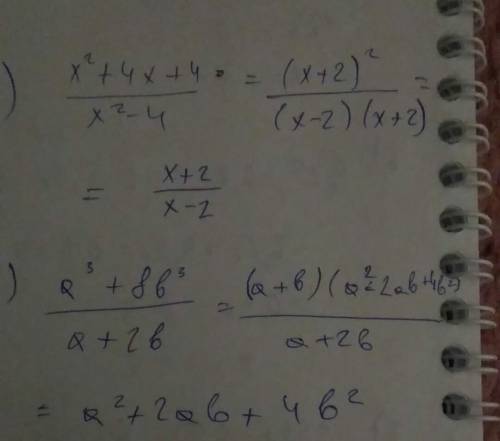 ) x²+4x+4 / x²-4 = (x+2)² / (x-2)(x+2) =
= x+2 / x-2
) a³+8b³ / a+2b = (a+b)(a²-2ab+4b²) / a+2b
= a²+2ab+4b²